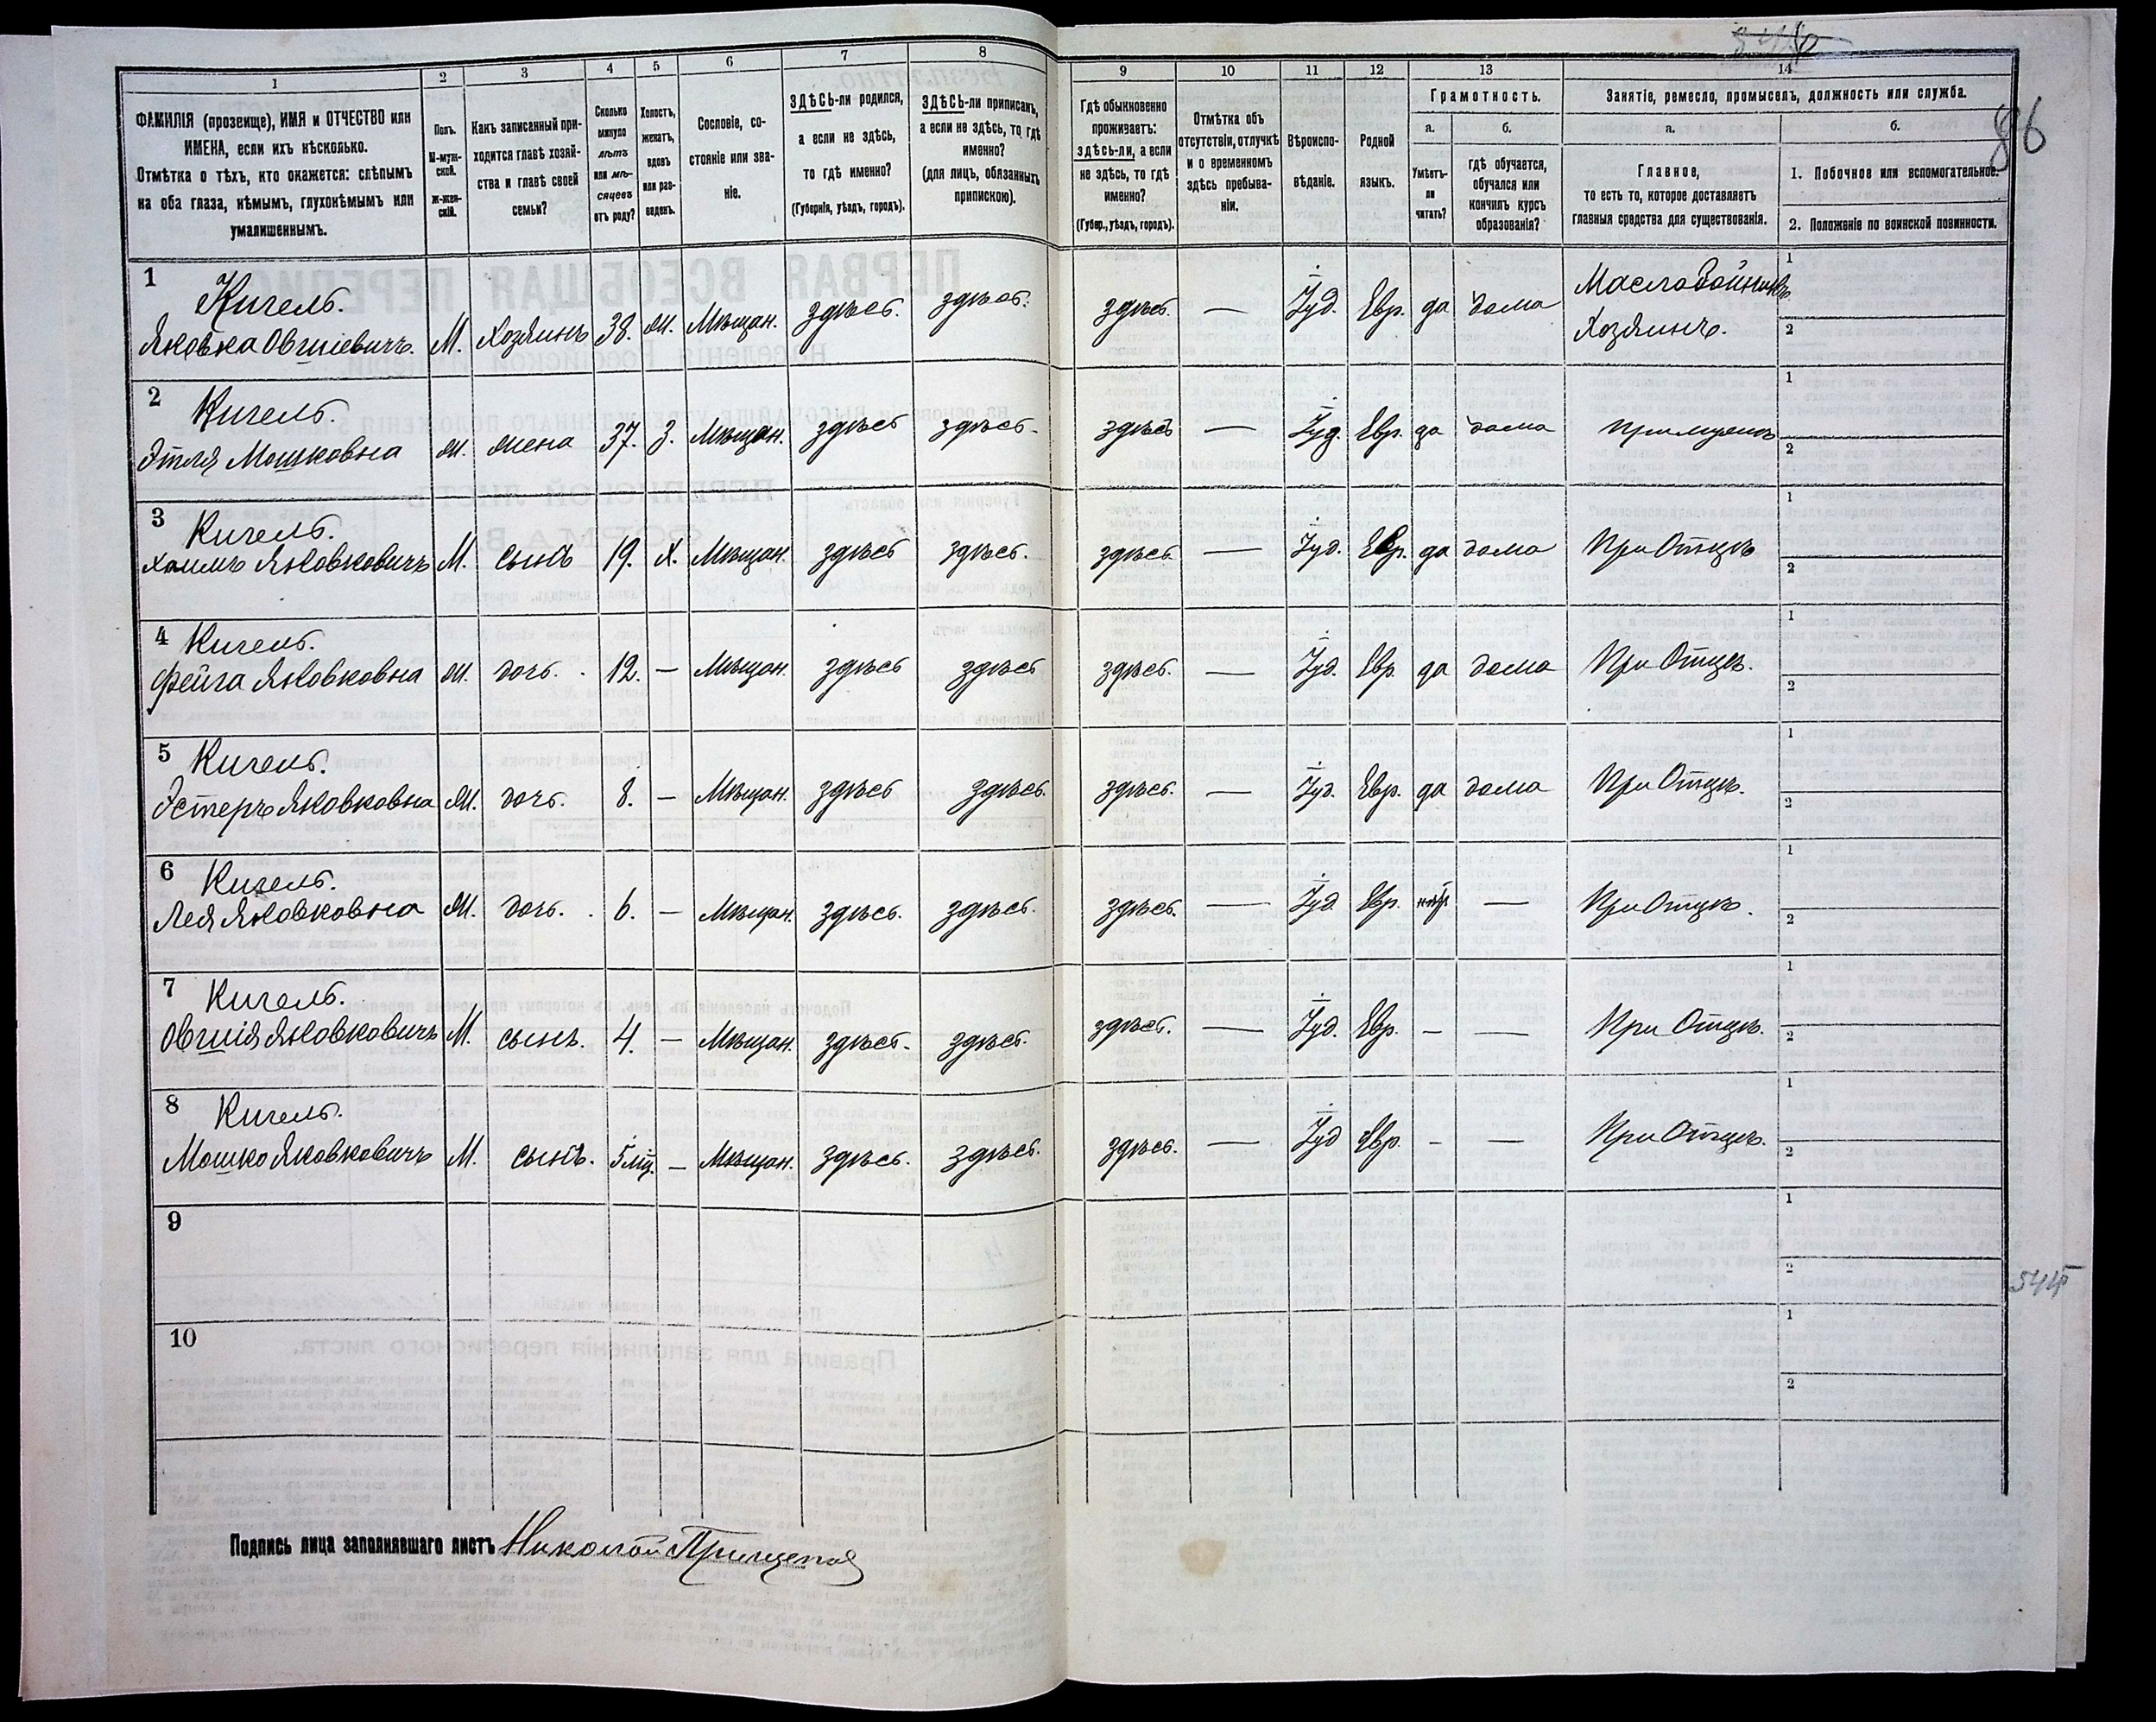 546
86
1
2
3
4
5
6
7
8
9
10
11
12
13
14
ФАМИЛІЯ (прозвище), ИМЯ и ОТЧЕСТВО или
ИМЕНА, если ихъ нѣсколько.
Отмѣтка о тѣхъ, кто окажется: слѣпымъ
на оба глаза, нѣмымъ, глухонѣмымъ или
умалишеннымъ.
Полъ.
М-муж-
ской.
Ж-жен-
скій.
Какъ записанный при-
ходится главѣ хозяй-
ства и главѣ своей
семьи?
Сколько
минуло
лѣтъ
или мѣ-
сяцевъ
отъ роду?
Холостъ,
женатъ,
вдовъ
или раз-
веденъ.
Сословіе, со-
стояніе или зва-
ніе.
ЗДѢСЬ-ли родился,
а если не здѣсь,
то гдѣ именно?
(Губернія, уѣздъ, городъ).
ЗДѢСЬ-ли приписанъ,
а если не здѣсь, то гдѣ
именно?
(для лицъ, обязанныхъ
припискою).
Гдѣ обыкновенно
проживаетъ:
здѣсь-ли, а если
не здѣсь, то гдѣ
именно?
(Губер., уѣздъ, городъ).
Отмѣтка объ
отсутствіи, отлучкѣ
и о временномъ
здѣсь пребыва-
ніи.
Вѣроиспо-
вѣданіе.
Родной
языкъ.
Грамотность.
а.
Умѣетъ-
ли
читать?
б.
гдѣ обучается,
обучался или
кончилъ курсъ
образованія?
Занятіе, ремесло, промыселъ, должность или служба.
а.
Главное,
то есть то, которое доставляетъ
главныя средства для существованія.
б.
1. Побочное или вспомогательное.
2. Положеніе по воинской повинности.
1 Кигель. Масловойникъ 1
Яковка Овшіевичъ. М. Хозяинъ 38. Ж. Мѣщан. здѣсь. здѣсь. здѣсь. — Іуд. Евр. да дома Хозяинъ. 2
2 Кигель. 1
Этля Мошковна Ж. жена 37. З. Мѣщан. здѣсь здѣсь. здѣсь — Іуд. Евр. да дома при мужѣ 2
3 Кигель. 1
Хаимъ Яковковичъ М. сынъ 19. Х. Мѣщан. здѣсь здѣсь. здѣсь — Іуд. Евр. да дома При Отцѣ 2
4 Кигель. 1
Фейга Яковковна Ж. дочь. 12. — Мѣщан. здѣсь здѣсь здѣсь. — Іуд. Евр. да дома При Отцѣ. 2
5 Кигель. 1
Эстеръ Яковковна Ж. дочь. 8. — Мѣщан. здѣсь здѣсь. здѣсь. — Іуд. Евр. да дома При Отцѣ. 2
6 Кигель. 1
Лея Яковковна Ж. дочь. 6. — Мѣщан. здѣсь. здѣсь. здѣсь. — Іуд. Евр. нѣтъ — При Отцѣ. 2
7 Кигель. 1
Овшія Яковковичъ М. сынъ. 4. — Мѣщан. здѣсь. здѣсь. здѣсь. — Іуд. Евр. - — При Отцѣ. 2
8 Кигель. 1
Мошко Яковковичъ М. сынъ. 5 мц. — Мѣщан. здѣсь. здѣсь. здѣсь. — Іуд Евр. - — При Отцѣ. 2
9 1
2
544
10 1
2
Подпись лица заполнявшаго листъ Николай Прищепов